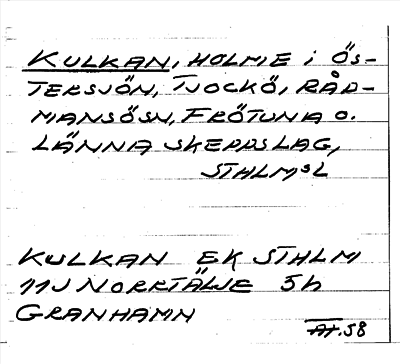 KULKAN, HOLME i ÖS-
TERSJÖN, TJOCKÖ, RÅD-
MANSÖSN, FRÖTUNA O.
LÄNNA SKEPPSLAG,
STHLMSL
KULKAN EK STHLM
11J NORRTÄLJE 5h
GRANHAMN
AH.58